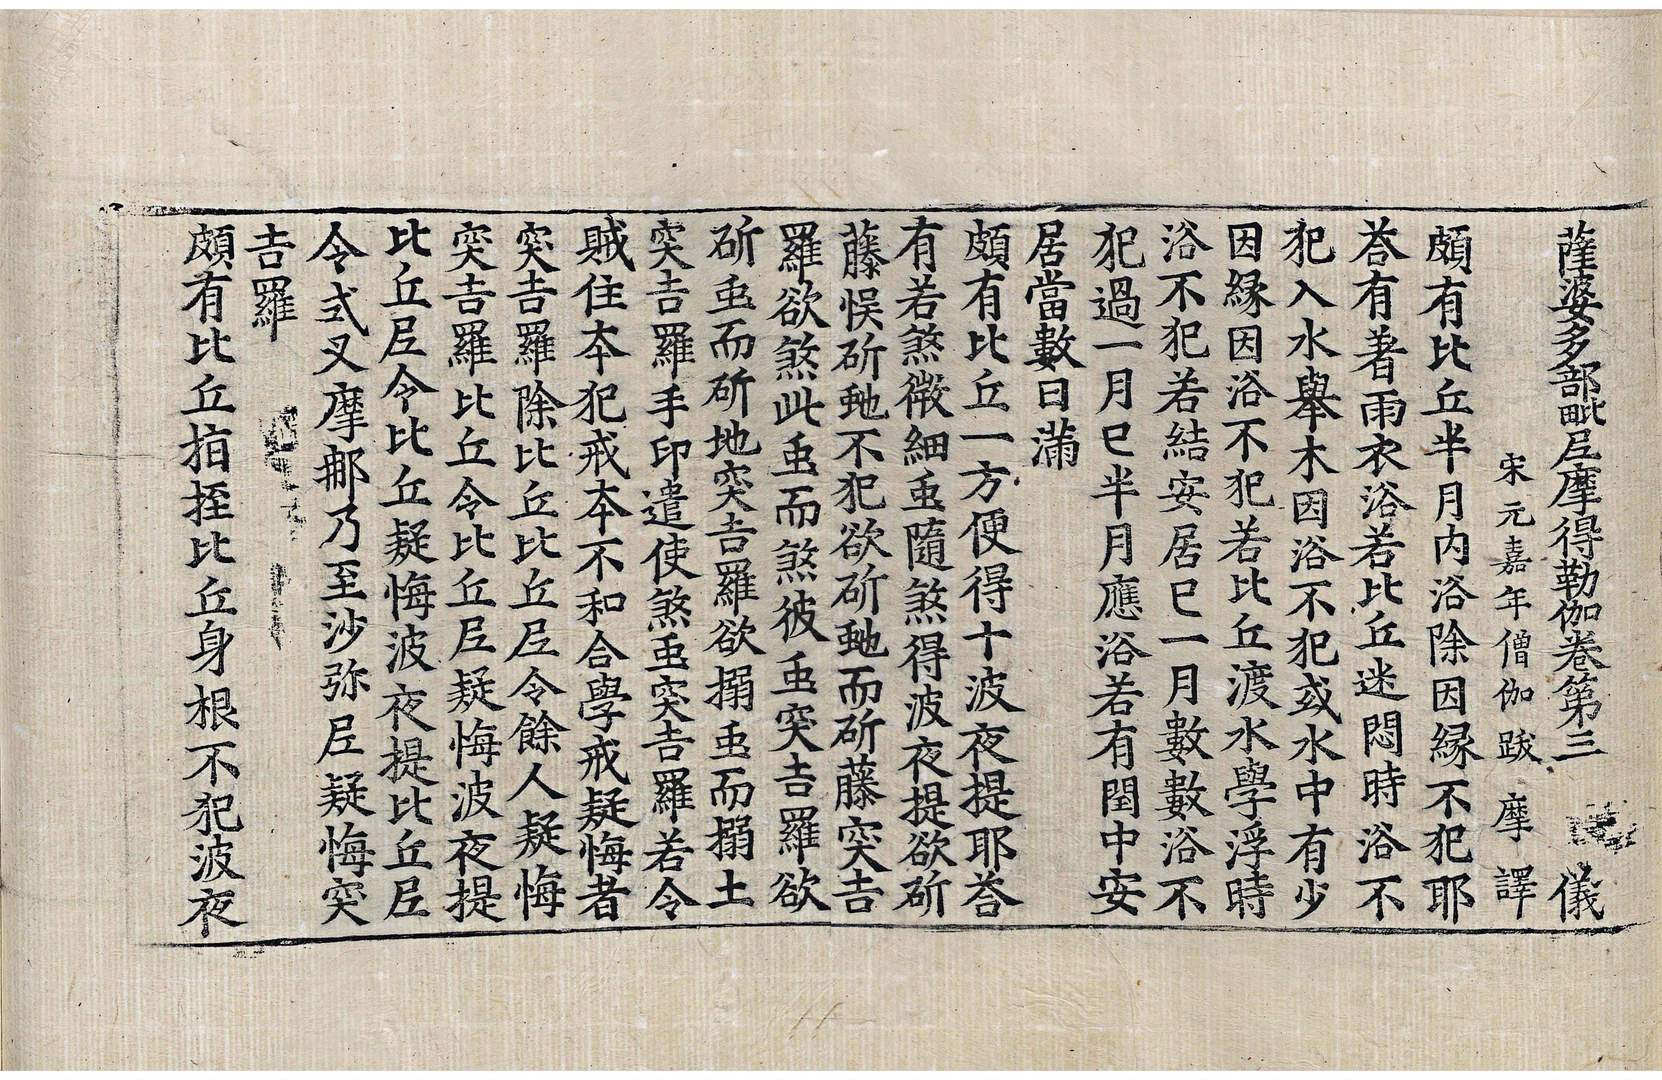 薩婆多部毗尼摩得勒伽卷第三　儀
宋元嘉年僧伽跋摩譯
頗有比丘半月內浴除因緣不犯耶
荅有著雨衣浴若比丘迷悶時浴不
犯入水舉木因浴不犯或水中有少
因緣因浴不犯若比丘渡水學浮時
浴不犯若結安居已一月數數浴不
犯過一月已半月應浴若有閏中安
居當數日滿
頗有比丘一方便得十波夜提耶荅
有若煞微細虫隨煞得波夜提欲斫
藤悮斫虵不犯欲斫虵而斫藤突吉
羅欲煞此虫而煞彼虫突吉羅欲
斫虫而斫地突吉羅欲搦虫而搦土
突吉羅手印遣使煞虫突吉羅若令
賊住本犯戒本不和合學戒疑悔者
突吉羅除比丘比丘尼令餘人疑悔
突吉羅比丘令比丘尼疑悔波夜提
比丘尼令比丘疑悔波夜提比丘尼
令式叉摩那乃至沙弥尼疑悔突
吉羅
頗有比丘拍拄比丘身根不犯波夜